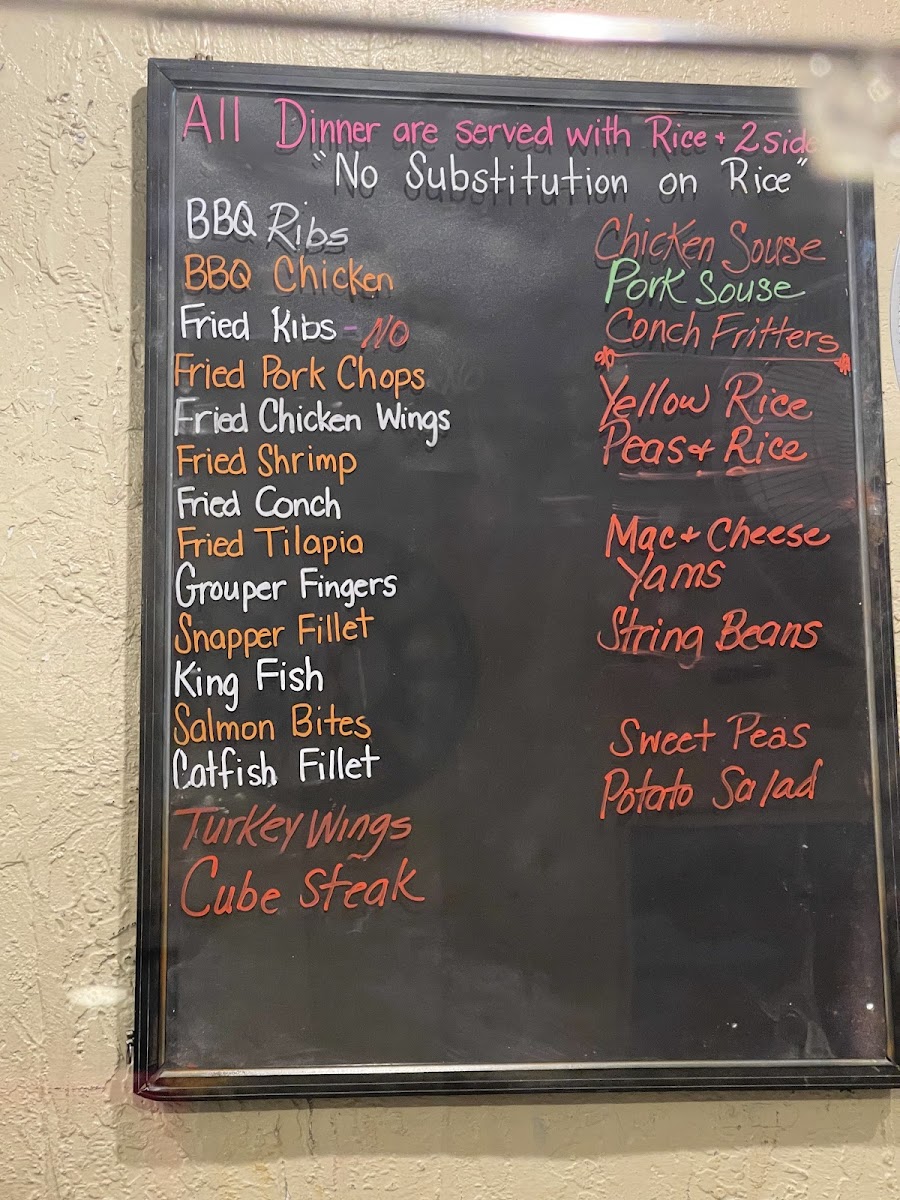 All Dinner are served with Rice + 2 side
"No Substitution on Rice"
BBQ Ribs
BBQ Chicken
Fried Ribs - NO
Fried Pork Chops
Fried Chicken Wings
Fried Shrimp
Fried Conch
Fried Tilapia
Grouper Fingers
Snapper Fillet
King Fish
Salmon Bites
Catfish Fillet
Turkey Wings
Cube Steak
Chicken Souse
Pork Souse
Conch Fritters
Yellow Rice
Peas + Rice
Mac + Cheese
Yams
String Beans
Sweet Peas
Potato Salad